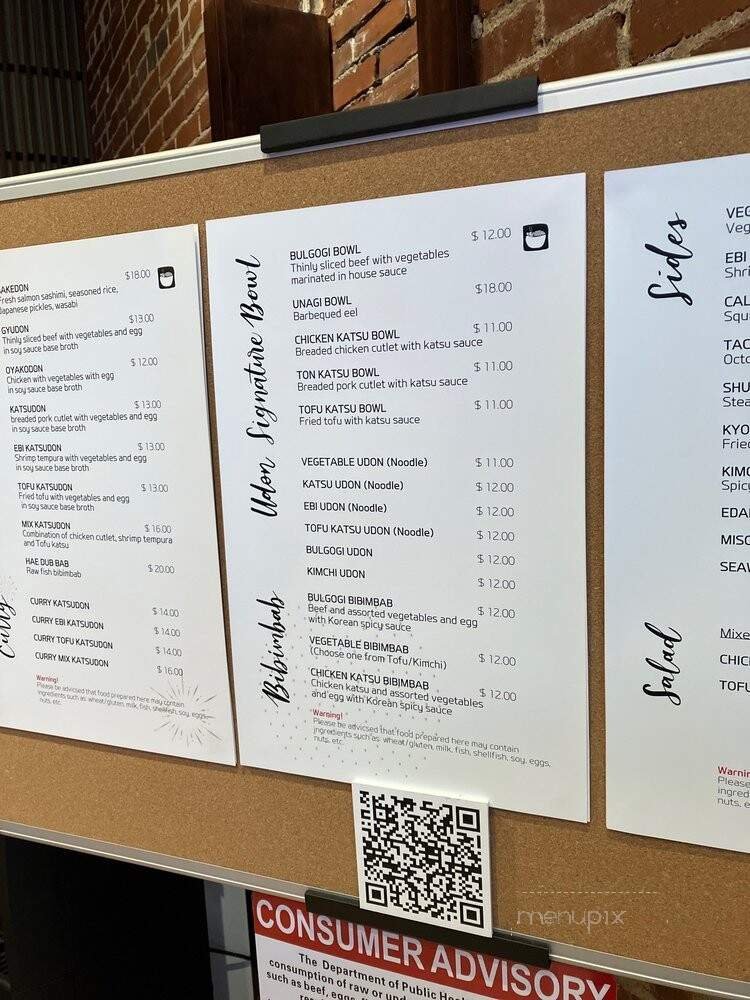 AKEDON $18.00
Fresh salmon sashimi, seasoned rice,
Japanese pickles, wasabi
GYUDON $13.00
Thinly sliced beef with vegetables and egg
in soy sauce base broth
OYAKODON $ 12.00
Chicken with vegetables with egg
in soy sauce base broth
KATSUDON $ 13.00
breaded pork cutlet with vegetables and egg
in soy sauce base broth
EBI KATSUDON $ 13.00
Shrimp tempura with vegetables and egg
in soy sauce base broth
TOFU KATSUDON $ 13.00
Fried tofu with vegetables and egg
in soy sauce base broth
MIX KATSUDON $ 16.00
Combination of chicken cutlet, shrimp tempura
and Tofu katsu
HAE DUB BAB $ 20.00
Raw fish bibimbab
Curry
CURRY KATSUDON $ 14.00
CURRY EBI KATSUDON $ 14.00
CURRY TOFU KATSUDON $ 14.00
CURRY MIX KATSUDON $ 16.00
Warning!
Please be advicsed that food prepared here may contain
ingredients such as: wheat/gluten, milk, fish, shellfish, soy, eggs,
nuts, etc.
Udon Signature Bowl
BULGOGI BOWL $ 12.00
Thinly sliced beef with vegetables
marinated in house sauce
UNAGI BOWL $18.00
Barbequed eel
CHICKEN KATSU BOWL $ 11.00
Breaded chicken cutlet with katsu sauce
TON KATSU BOWL $ 11.00
Breaded pork cutlet with katsu sauce
TOFU KATSU BOWL $ 11.00
Fried tofu with katsu sauce
VEGETABLE UDON (Noodle) $ 11.00
KATSU UDON (Noodle) $ 12.00
EBI UDON (Noodle) $ 12.00
TOFU KATSU UDON (Noodle) $ 12.00
BULGOGI UDON $ 12.00
KIMCHI UDON $ 12.00
Bibimbab
BULGOGI BIBIMBAB $ 12.00
Beef and assorted vegetables and egg
with Korean spicy sauce
VEGETABLE BIBIMBAB $ 12.00
(Choose one from Tofu/Kimchi)
CHICKEN KATSU BIBIMBAB $ 12.00
Chicken katsu and assorted vegetables
and egg with Korean spicy sauce
Warning!
Please be advicsed that food prepared here may contain
ingredients such as: wheat/gluten, milk, fish, shellfish, soy, eggs,
nuts, etc.
Sides
VEG
Veg
EBI
Shri
CAL
Squ
TAC
Octo
SHU
Stea
KYO
Fried
KIMC
Spicy
EDA
MISO
SEAW
Salad
Mixe
CHIC
TOFU
Warnin
Please
ingred
nuts, e
menupix
CONSUMER ADVISORY
The Department of Public Hea
consumption of raw or und
such as beef, eggs, f